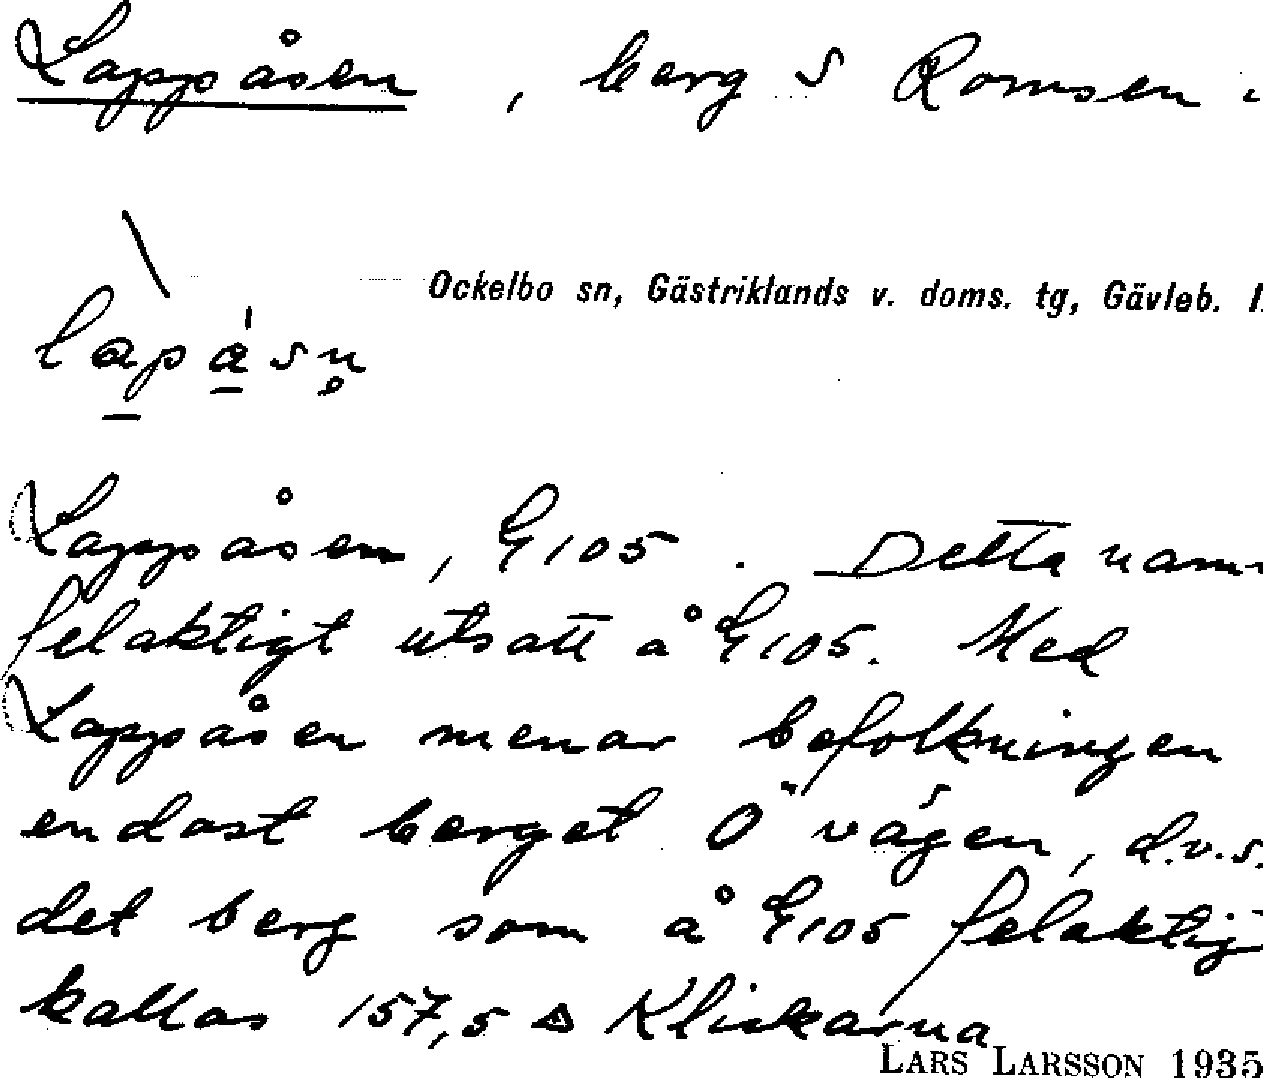 Lappåsen, berg S Romsen i
Ockelbo sn, Gästriklands v. doms. tg, Gävleb. l.
lapåsn̥
Lappåsen, G105. Detta namn
felaktigt utsatt å G105. Med
Lappåsen menar befolkningen
endast berget Ö vägen, d.v.s.
det berg som å G105 felaktig
kallas 157,5 △ Klickarna
LARS LARSSON 1935